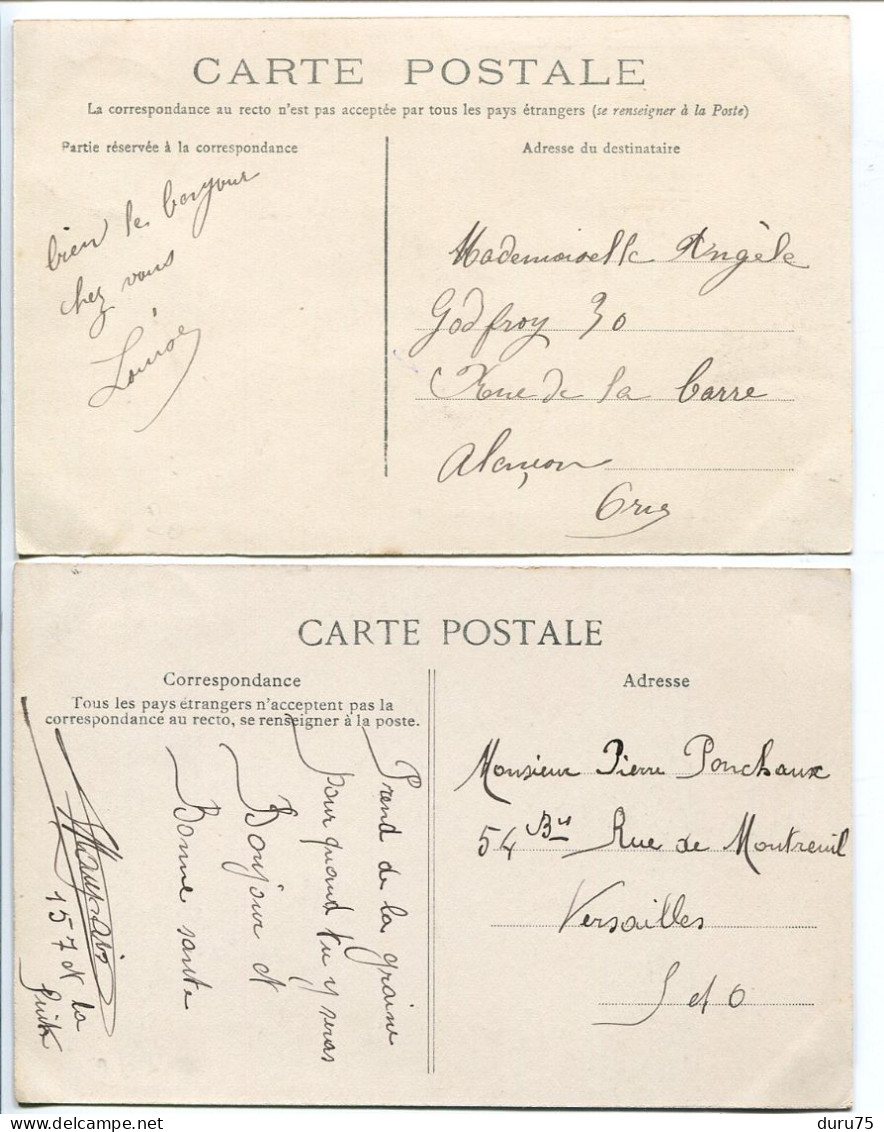 CARTE POSTALE
La correspondance au recto n'est pas acceptée par tous les pays étrangers (se renseigner à la Poste)
Partie réservée à la correspondance
bien le bonjour
chez vous
Louise
Adresse du destinataire
Mademoiselle Angèle
Godfroy 30
Rue de la barre
Alençon
Orne
CARTE POSTALE
Correspondance
Tous les pays étrangers n'acceptent pas la
correspondance au recto, se renseigner à la poste.
Prend de la graine
pour quand tu y seras
Bonjour et
Bonne santé
157 et la
Adresse
Monsieur Pierre Ponchaux
54 Bis Rue de Montreuil
Versailles
S et O
duru75